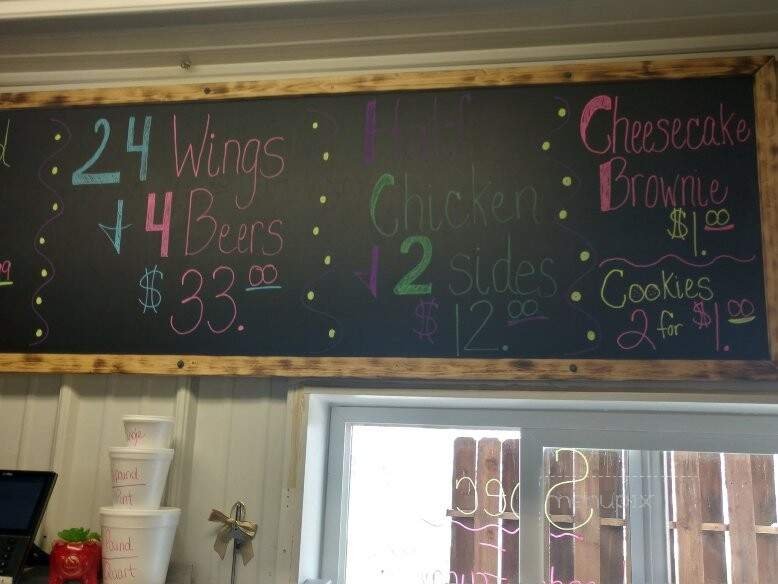 24 Wings
+ 4 Beers
$33.00
Half
Chicken
+ 2 sides
$12.00
Cheesecake
Brownie
$1.00
Cookies
2 for $1.00
Pint
Quart
menupix